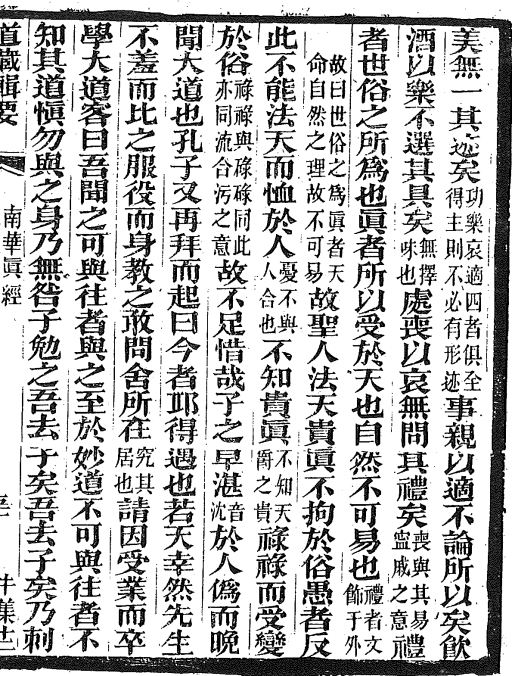 美無一其迹矣功樂哀適四者俱全得主則不必有形迹事親以適不論所以矣飲
酒以樂不選其具矣無擇味也處喪以哀無問其禮矣喪與其易寍戚之意禮
者世俗之所爲也眞者所以受於天也自然不可易也禮者文飾于外
故曰世俗之爲眞者天命自然之理故不可易故聖人法天貴眞不拘於俗愚者反
此不能法天而恤於人憂不與人合也不知貴眞不知天爵之貴祿祿而受變
於俗祿祿與碌碌同此亦同流合污之意故不足惜哉子之早湛音沈於人僞而晚
聞大道也孔子又再拜而起曰今者丘得遇也若天幸然先生
不羞而比之服役而身教之敢問舍所在究其居也請因受業而卒
學大道客曰吾聞之可與往者與之至於妙道不可與往者不
知其道愼勿與之身乃無咎子勉之吾去子矣吾去子矣乃刺
道藏輯要
南華眞經
牛集士